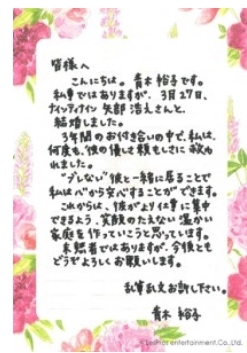 皆様へ
こんにちは。青木裕子です。
私事ではありますが、3月27日、
ナインティナイン 矢部浩之さんと、
結婚しました。
3年間のお付き合いの中で、私は、
何度も、彼の優しさ頼もしさに救わ
れました。
"ブレない"彼と一緒に居ることで
私は心から安心することができます。
これからは、彼がより仕事に集中
できるよう、笑顔のたえない温かい
家庭を作っていこうと思っています。
未熟者ではありますが、今後とも
どうぞよろしくお願いします。
乱筆乱文お許し下さい。
青木 裕子
entertainment.Co.,Ltd.